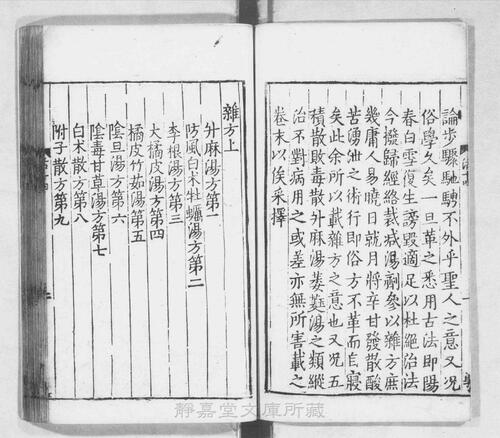 論步驟馳騁不外乎聖人之意又況
俗學久矣一旦革之悉用古法即陽
春白雪復生謗毀適足以杜絕治法
今撥歸經絡裁減湯劑參以雜方庶
幾庸人易曉日就月將辛甘發散酸
苦湧泄之術行即俗方不革而自寢
矣此余所以載雜方之意也又況五
積散敗毒散外麻湯葳蕤湯之類縱
治不對病用之或差亦無所害載之
卷末以俟采擇
雜方上
外麻湯方第一
防風白朮牡蠣湯方第二
李根湯方第三
大橘皮湯方第四
橘皮竹如湯第五
陰旦湯方第六
陰毒甘草湯方第七
白朮散方第八
附子散方第九
靜嘉堂文庫所藏